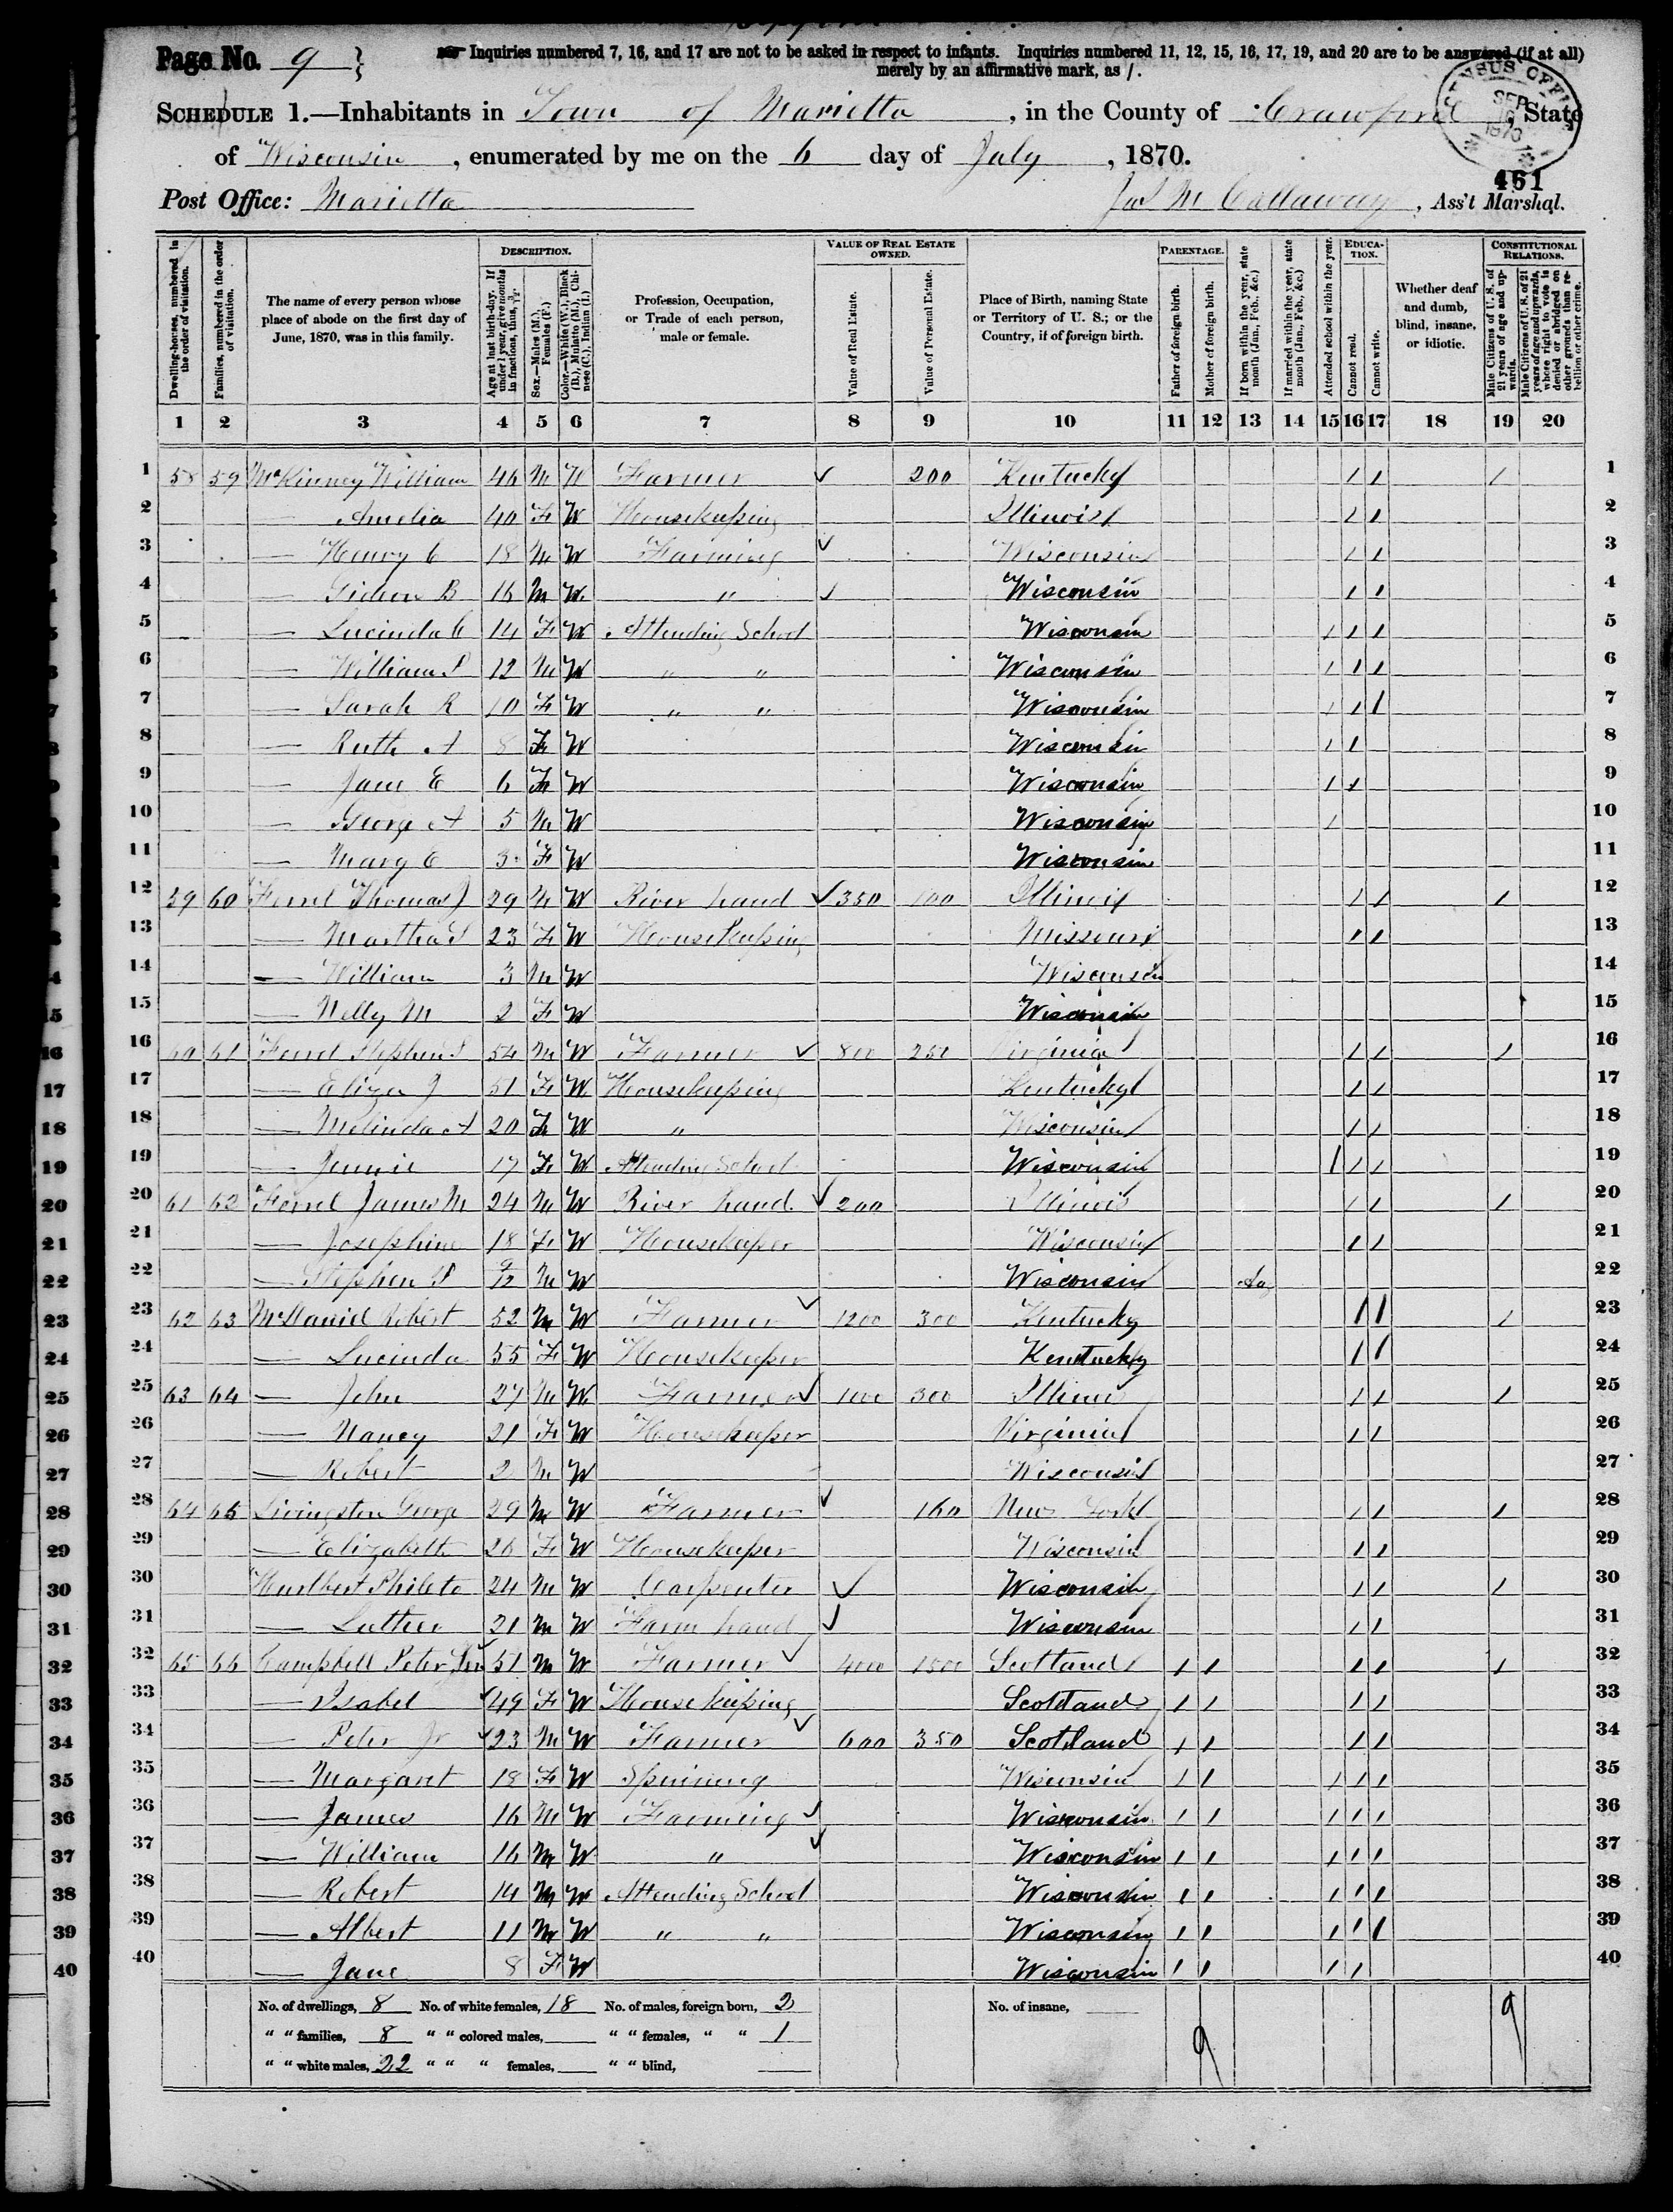 Page No. 9
Inquiries numbered 7, 16, and 17 are not to be asked in respect to infants. Inquiries numbered 11, 12, 15, 16, 17, 19, and 20 are to be answered (if at all)
merely by an affirmative mark, as /.
SCHEDULE 1.—Inhabitants in Town of Marietta, in the County of Crawford, State
of Wisconsin, enumerated by me on the 6 day of July, 1870.
CENSUS OFFICE SEP 1870
461
Post Office: Marietta Jas M Callaway, Ass't Marshal.
Dwelling-houses, numbered in the order of visitation.
Families, numbered in the order of visitation.
The name of every person whose place of abode on the first day of June, 1870, was in this family.
DESCRIPTION.
Age at last birth-day. If under 1 year, give months in fractions, thus, 3/12.
Sex.—Males (M.), Females (F.)
Color.—White (W.), Black (B.), Mulatto (M.), Chinese (C.), Indian (I.)
Profession, Occupation, or Trade of each person, male or female.
VALUE OF REAL ESTATE OWNED.
Value of Real Estate.
Value of Personal Estate.
Place of Birth, naming State or Territory of U. S.; or the Country, if of foreign birth.
PARENTAGE.
Father of foreign birth.
Mother of foreign birth.
If born within the year, state month (Jan., Feb., &c.)
If married within the year, state month (Jan., Feb., &c.)
Attended school within the year.
EDUCATION.
Cannot read.
Cannot write.
Whether deaf and dumb, blind, insane, or idiotic.
CONSTITUTIONAL RELATIONS.
Male Citizens of U. S. of 21 years of age and upwards.
Male Citizens of U. S. of 21 years of age and upwards, whose right to vote is denied or abridged on other grounds than rebellion or other crime.
1 2 3 4 5 6 7 8 9 10 11 12 13 14 15 16 17 18 19 20
1 58 59 McKinney William 46 M W Farmer ✓ 200 Kentucky / / / 1
2 — Amelia 40 F W Housekeeping Illinois / / 2
3 — Henry C 18 M W Farming ✓ Wisconsin / / 3
4 — Gideon B 16 M W " ✓ Wisconsin / / 4
5 — Lucinda C 14 F W Attending School Wisconsin / / / 5
6 — William S 12 M W " " Wisconsin / / / 6
7 — Sarah R 10 F W " " Wisconsin / / / 7
8 — Ruth A 8 F W Wisconsin / / 8
9 — Jane E 6 F W Wisconsin / / 9
10 — George A 5 M W Wisconsin / 10
11 — Mary E 3 F W Wisconsin 11
12 59 60 Ferrel Thomas J 29 M W River hand ✓ 350 100 Illinois / / / 12
13 — Martha S 23 F W Housekeeping Missouri / / 13
14 — William 3 M W Wisconsin 14
15 — Nelly M 2 F W Wisconsin 15
16 60 61 Ferrel Stephen S 54 M W Farmer ✓ 800 250 Virginia / / / 16
17 — Eliza J 51 F W Housekeeping Kentucky / / 17
18 — Melinda A 20 F W " Wisconsin / / 18
19 — Jennie 17 F W Attending School Wisconsin / / / 19
20 61 62 Ferrel James M 24 M W River hand ✓ 200 Illinois / / / 20
21 — Josephine 18 F W Housekeeper Wisconsin / / 21
22 — Stephen S 9/12 M W Wisconsin 22
23 62 63 McDaniel Robert 52 M W Farmer ✓ 1200 300 Kentucky / / / 23
24 — Lucinda 55 F W Housekeeper Kentucky / / 24
25 63 64 — John 27 M W Farmer ✓ 1000 300 Illinois / / / 25
26 — Nancy 21 F W Housekeeper Virginia / / 26
27 — Robert 2 M W Wisconsin 27
28 64 65 Livingston George 29 M W Farmer ✓ 160 New York / / / 28
29 — Elizabeth 26 F W Housekeeper Wisconsin / / 29
30 Hurlbert Phileto 24 M W Carpenter ✓ Wisconsin / / / 30
31 — Luther 21 M W Farm hand ✓ Wisconsin / / 31
32 65 66 Campbell Peter Sen 51 M W Farmer ✓ 4000 1500 Scotland / / / / / 32
33 — Isabel 49 F W Housekeeping Scotland / / / / 33
34 — Peter Jr 23 M W Farmer ✓ 600 350 Scotland / / / / 34
35 — Margaret 18 F W Spinning Wisconsin / / / / / 35
36 — James 16 M W Farming ✓ Wisconsin / / / / / 36
37 — William 16 M W " ✓ Wisconsin / / / / / 37
38 — Robert 14 M W Attending School Wisconsin / / / / / 38
39 — Albert 11 M W " " Wisconsin / / / / / 39
40 — Jane 8 F W Wisconsin / / / / 40
No. of dwellings, 8 No. of white females, 18 No. of males, foreign born, 2 No. of insane, 9
" " families, 8 " " colored males, " " females, " " 1 9
" " white males, 22 " " " females, " " blind,